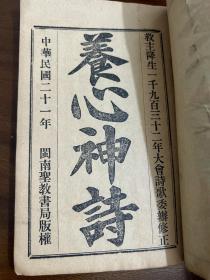 教主降生一千九百三十二年大會詩歌委辦修正
養心神詩
中華民國二十一年　閩南聖教書局版權